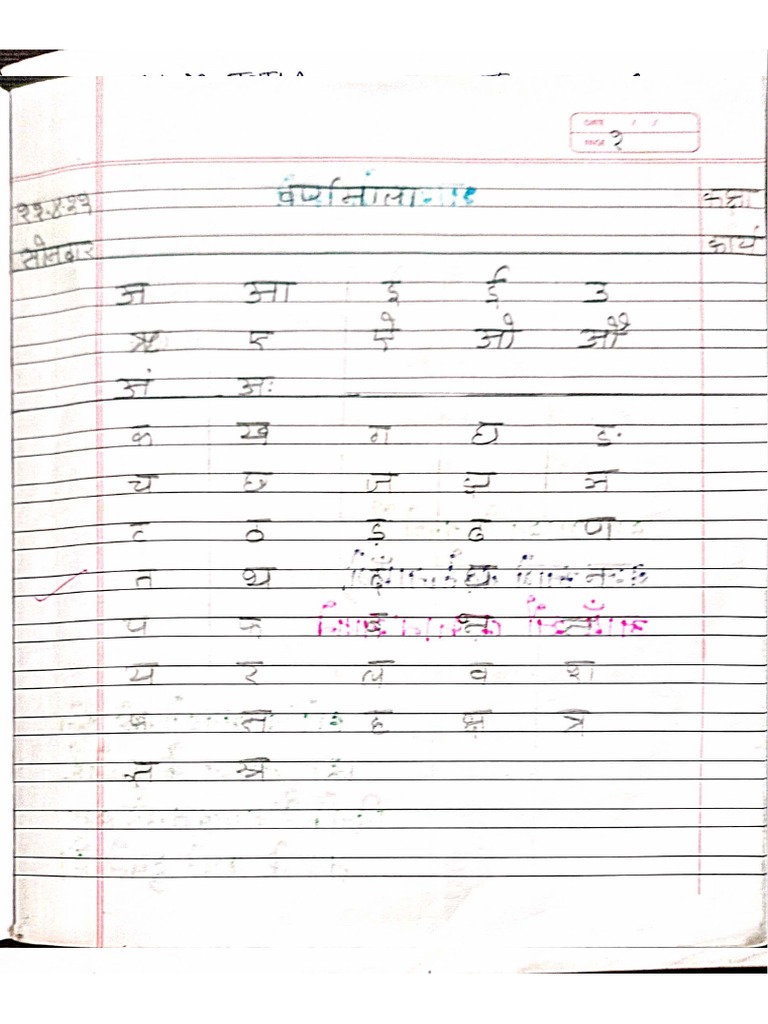 DATE / /
PAGE २
वर्णमाला
कक्षा
सोमवार
कार्य
अ आ इ ई उ
ऋ ए ऐ ओ औ
अं अः
क ख ग घ ङ
च छ ज झ ञ
ट ठ ड ढ ण
त थ द ध न
प फ ब भ म
य र ल व श
ष स ह क्ष त्र
ज्ञ श्र